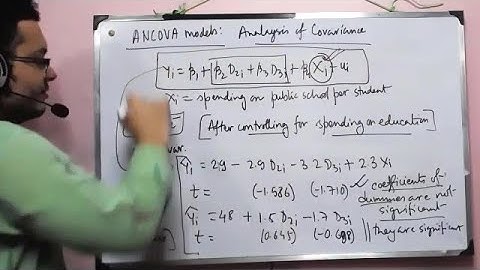 ANCOVA models: Analysis of Covariance
Yi = β1 + β2 D2i + β3 D3i + β4 Xi + ui
Xi = spending on public school per student
[After controlling for spending on education]
var.
Yi = 29 - 2.9 D2i - 3.2 D3i + 2.3 Xi
t = (-1.586) (-1.710) coefficients of
dummies are not
significant
Yi = 48 + 1.5 D2i - 1.7 D3i
t = (0.645) (-0.698) || they are significant